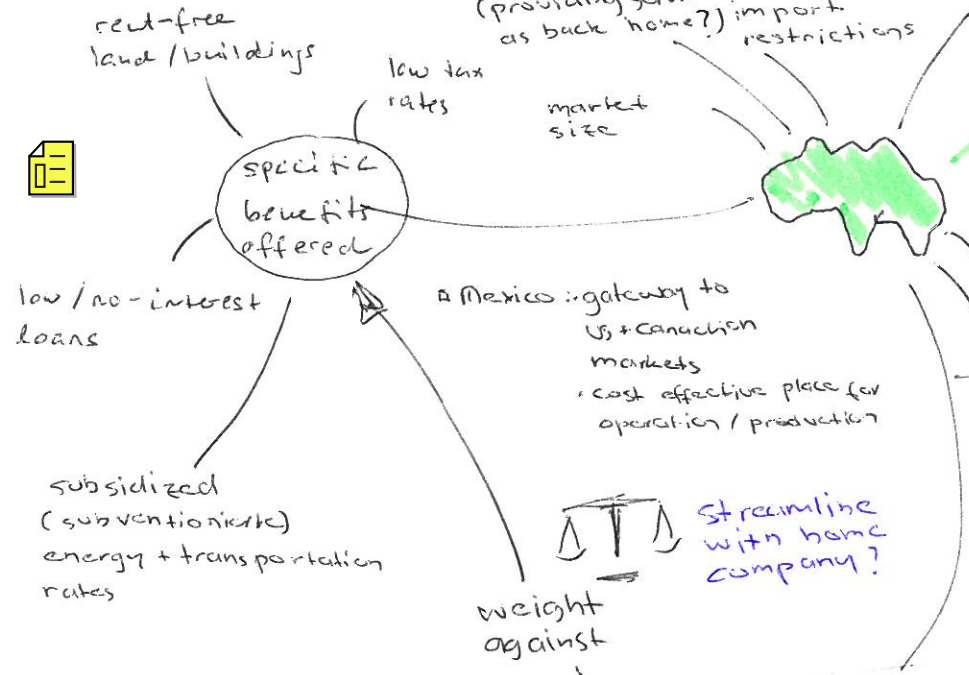 rent-free
land / buildings
low tax
rates
as back home?)
import
restrictions
market
size
specific
benefits
offered
low / no-interest
loans
Mexico : gateway to
US + Canadian
markets
• cost effective place for
operation / production
subsidized
(subventionierte)
energy + transportation
rates
streamline
with home
company?
weight
against